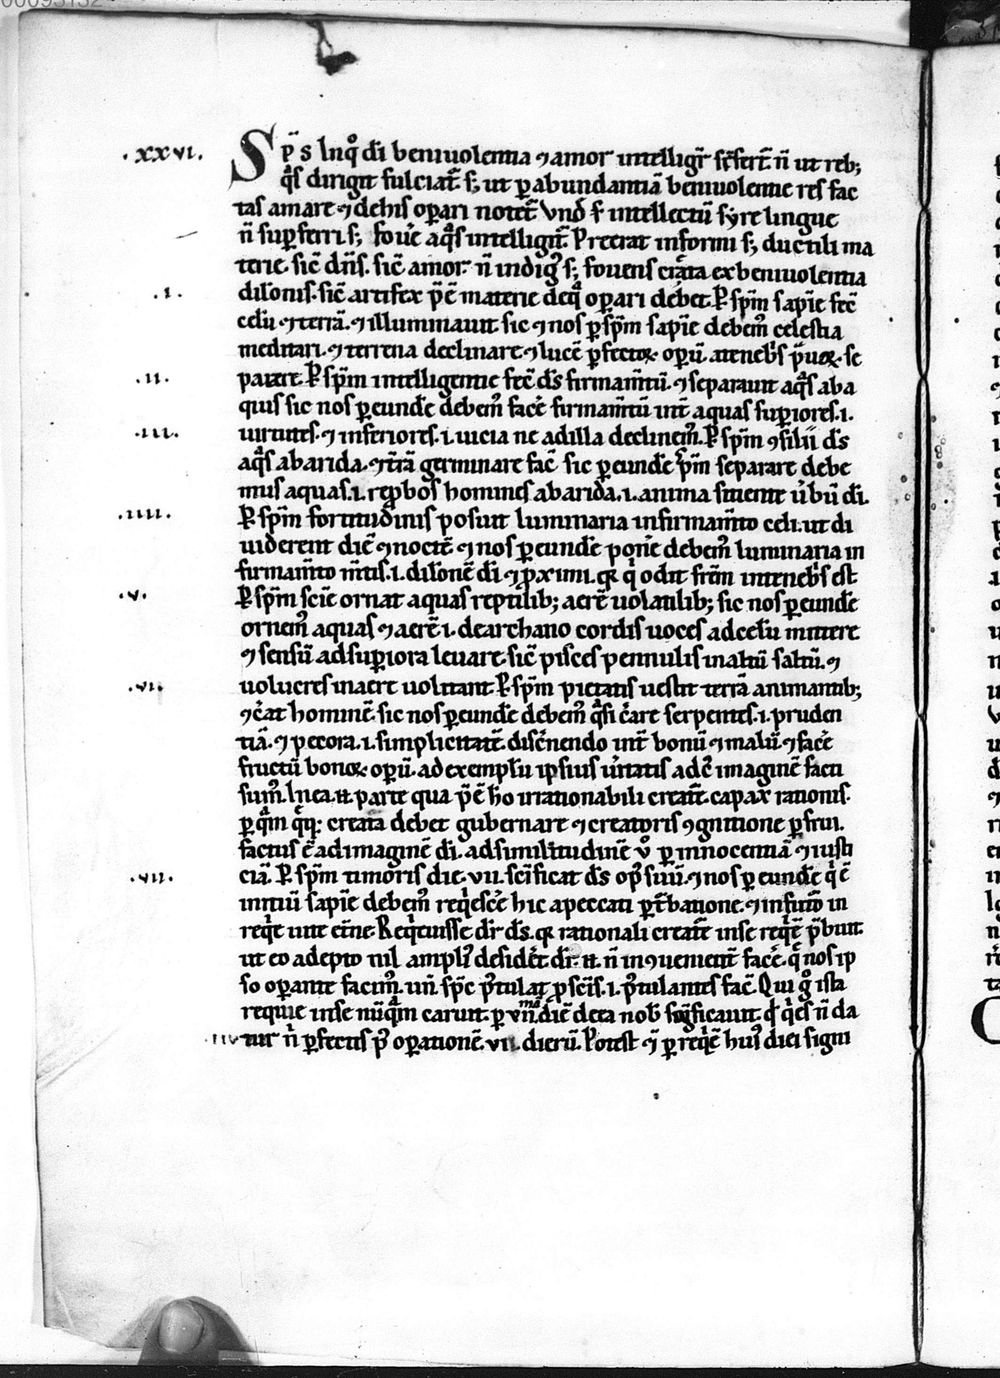 .xxvi. Sp̄s In qͦ dī beniuolentia ⁊ amor intelligit̄ sc̄s fert̄ n̄ ut reb;
qͣs dirigit fulciat̄ s; ut ꝑ abundantiā beniuolentie res fac
tas amare ⁊ de his oꝑari notet̄ Vnd̄ ſ intellectū syre lingue
n̄ suꝑferri s; fouē aqͣs intelligit̄. Preerat informi s; ductili ma
terie. sic̄ dn̄s. sic̄ amor. n̄ indigꝰ s; fouens c̄ata ex beniuolentia
.i. dil̄onis. sic̄ artifex p̄ē materie de qͣ oꝑari debet. ꝑ sp̄m sapīe fec̄
celū ⁊ terrā. ⁊ illuminauit sic ⁊ nos ꝑ sp̄m sapīe debemꝰ celestia
meditari. ⁊ terrena declinare ⁊ lucē ꝑfectoꝝ oꝑū. a tenebˢ p̄uoꝝ. se
.ii. parare. ꝑ sp̄m intelligentie fec̄ ds̄ firmam̄tū. ⁊ separauit aqͣs ab a
quis sic nos ꝑ eunde debemꝰ facē firmam̄tū int̄ aquas suꝑiores .i.
.iii. uirtutes. ⁊ inferiores .i. uicia ne ad illa declinemꝰ. ꝑ sp̄m ꝯsilii ds̄
aqͣs ab arida. ⁊ t̄rā germinare fac̄ sic ꝑ eunde sp̄m separare debe
mus aquas .i. rep̄bos homines ab arida .i. anima sitiente ūbū dī.
.iiii. ꝑ sp̄m fortitudinis posuit luminaria in firmam̄to celi. ut di
uiderent diē ⁊ noctē ⁊ nos ꝑ eunde ponē debemꝰ luminaria in
firmam̄to m̄tis .i. dil̄onē dī ⁊ ꝓximi. qꝛ qͥ odit fr̄em in tenebˢ est
.v. ꝑ sp̄m scīe ornat aquas reptilib; aerē uolatilib; sic nos ꝑ eunde
ornemꝰ aquas ⁊ aerē .i. de archano cordis uoces ad celū mittere
⁊ sensū ad suꝑiora leuare. sic̄ pisces pennulis in altū saltū. ⁊
.vi. uolucres in aere uolitant. ꝑ sp̄m pietatis uestit terrā animantib;
⁊ c̄at hominē. sic nos ꝑ eunde debemꝰ qͣsi c̄are serpentes .i. pruden
tiā. ⁊ pecora .i. simplicitatē. disc̄nendo int̄ bonū ⁊ malū. ⁊ facē
fructū bonoꝝ oꝑū. ad exemplū ipsius ūitatis ad c̄ imaginē facti
sumꝰ. In ea. n. parte qua p̄ē ho irrationabili creat̄e. capax rationis.
ꝑ qͣm qͣqͣ: creata debet gubernare ⁊ creatoris ꝯgnitione ꝑfrui.
factus ē ad imaginē dī. ad similitudinē ū ꝑ innocentiā ⁊ iusti
.vii. ciā. ꝑ sp̄m timoris die .vii. sc̄ificat ds̄ opꝰ suū. ⁊ nos ꝑ eunde q̄ ē
initiū sapīe debemꝰ reqͥescē hic a peccati ꝑt̄batione. ⁊ in futuro in
reqͥe uite et̄ne. Reqͥeuisse dr̄ ds̄. qꝛ rationali creat̄e in se reqͥē p̄buit.
ut eo adepto nil ampliꝰ desidet. dr̄. n. n̄ inꝯuenient̄ facē. qͣ nos ip
so oꝑante facimꝰ. un̄ sp̄c p̄tulat ꝓ sc̄is .i. p̄tulantes fac̄. Qui gͦ ista
requie in se nūqͣm caruit. ꝑ vii.mā diē dc̄ta nob̄ significauit. qͥ qͥes n̄ da
tur n̄ ꝑfectis pꝰ oꝑationē .vii. dierū. Potest ⁊ ꝑ reqͥē huiꝰ diei signi